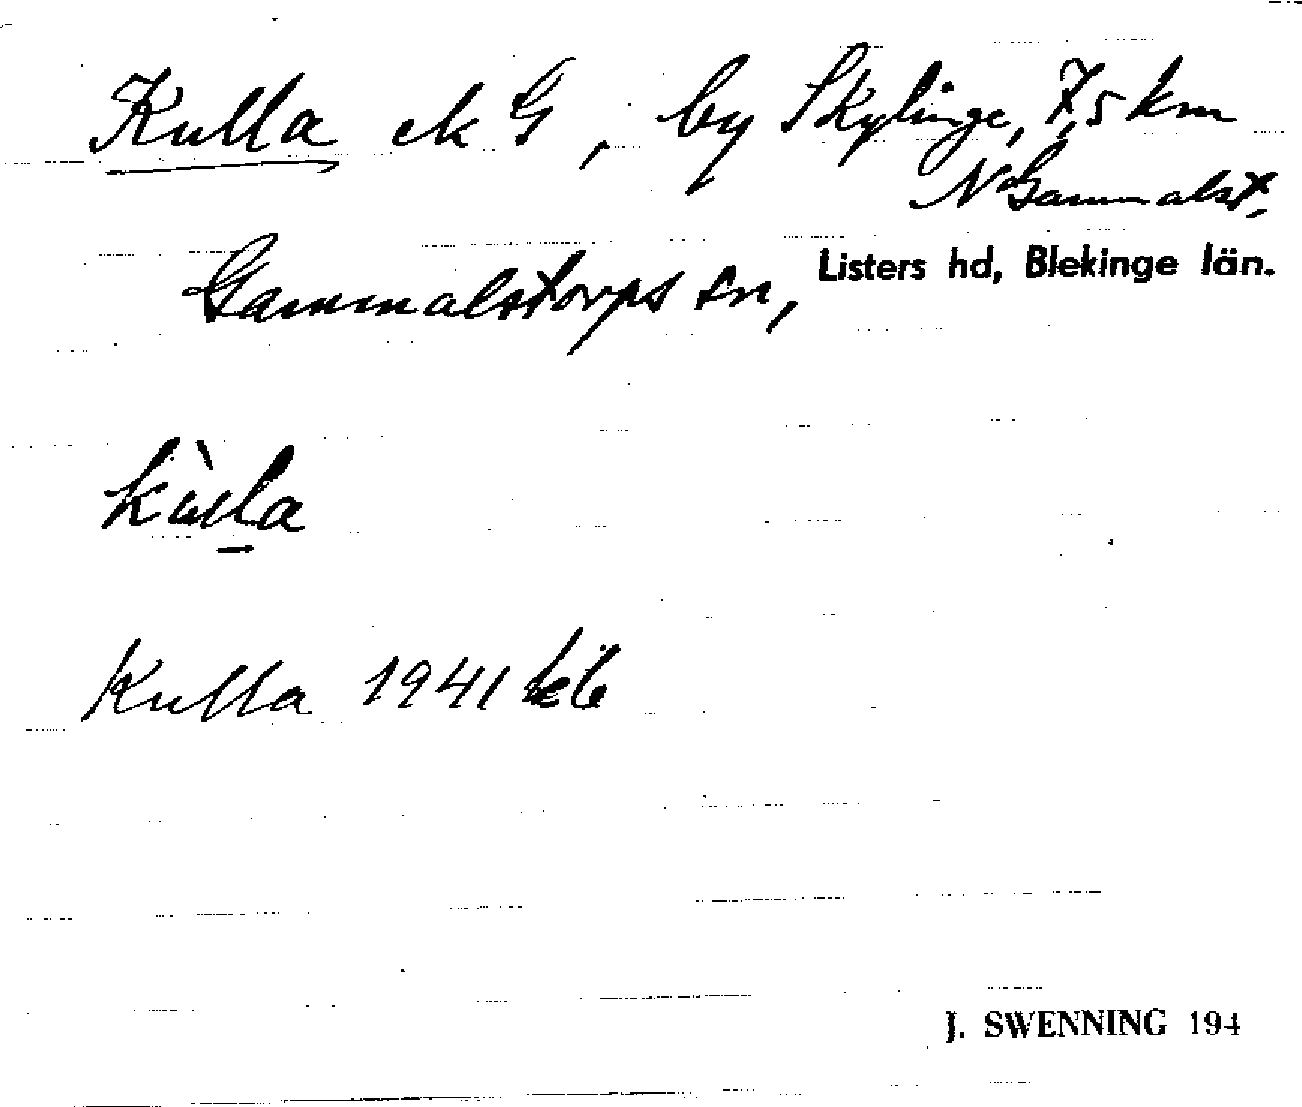 Kulla ek G, by Skylinge, 7,5 km
N Gammalst.
Gammalstorps sn, Listers hd, Blekinge län.
kùlla
Kulla 1941
J. SWENNING 194